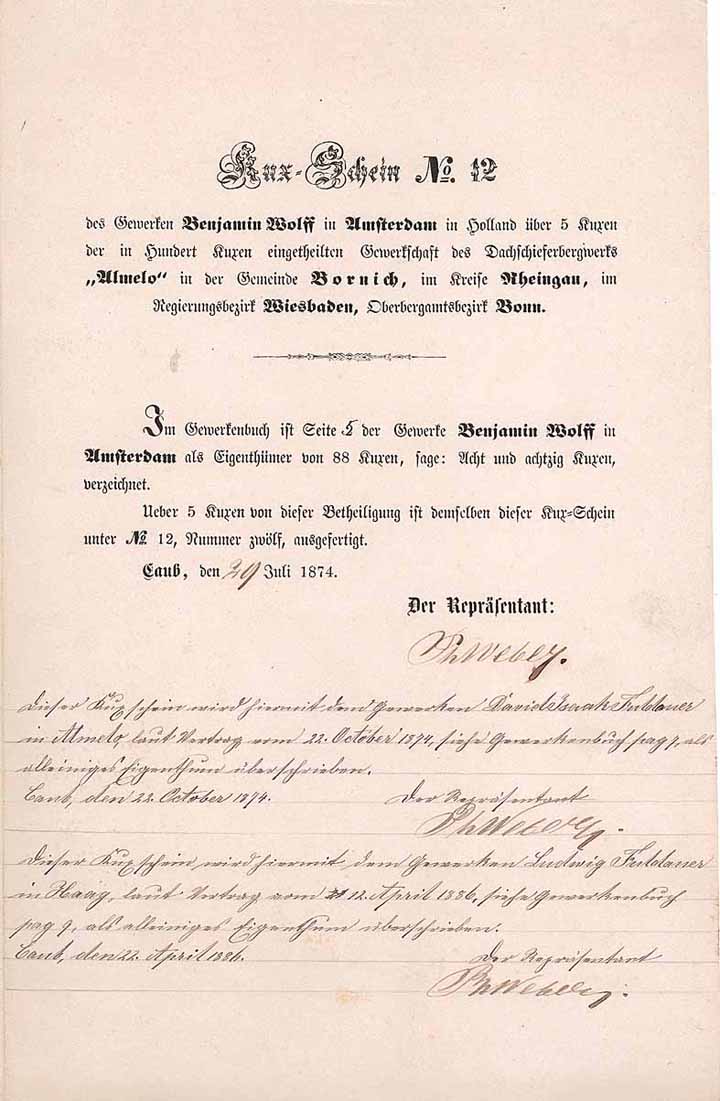 Kux-Schein No. 12
des Gewerken Benjamin Wolff in Amsterdam in Holland über 5 Kuxen
der in Hundert Kuxen eingetheilten Gewerkschaft des Dachschieferbergwerks
„Almelo“ in der Gemeinde Bornich, im Kreise Rheingau, im
Regierungsbezirk Wiesbaden, Oberbergamtsbezirk Bonn.
Im Gewerkenbuch ist Seite 5 der Gewerke Benjamin Wolff in
Amsterdam als Eigenthümer von 88 Kuxen, sage: Acht und achtzig Kuxen,
verzeichnet.
Ueber 5 Kuxen von dieser Betheiligung ist demselben dieser Kux-Schein
unter No. 12, Nummer zwölf, ausgefertigt.
Caub, den 29 Juli 1874.
Der Repräsentant:
Ph Weber.
Dieser Kuxschein wird hiermit dem Gewerken David Isaak Fuldauer
in Almelo, laut Vertrag vom 22. October 1874, siehe Gewerkenbuch pag 7, als
alleiniges Eigenthum überschrieben.
Caub, den 22. October 1874. Der Repräsentant
Ph Weber.
Dieser Kuxschein wird hiermit dem Gewerken Ludwig Fuldauer
in Haag, laut Vertrag vom 12. April 1886, siehe Gewerkenbuch
pag 9, als alleiniges Eigenthum überschrieben.
Caub, den 22. April 1886. Der Repräsentant
Ph Weber.